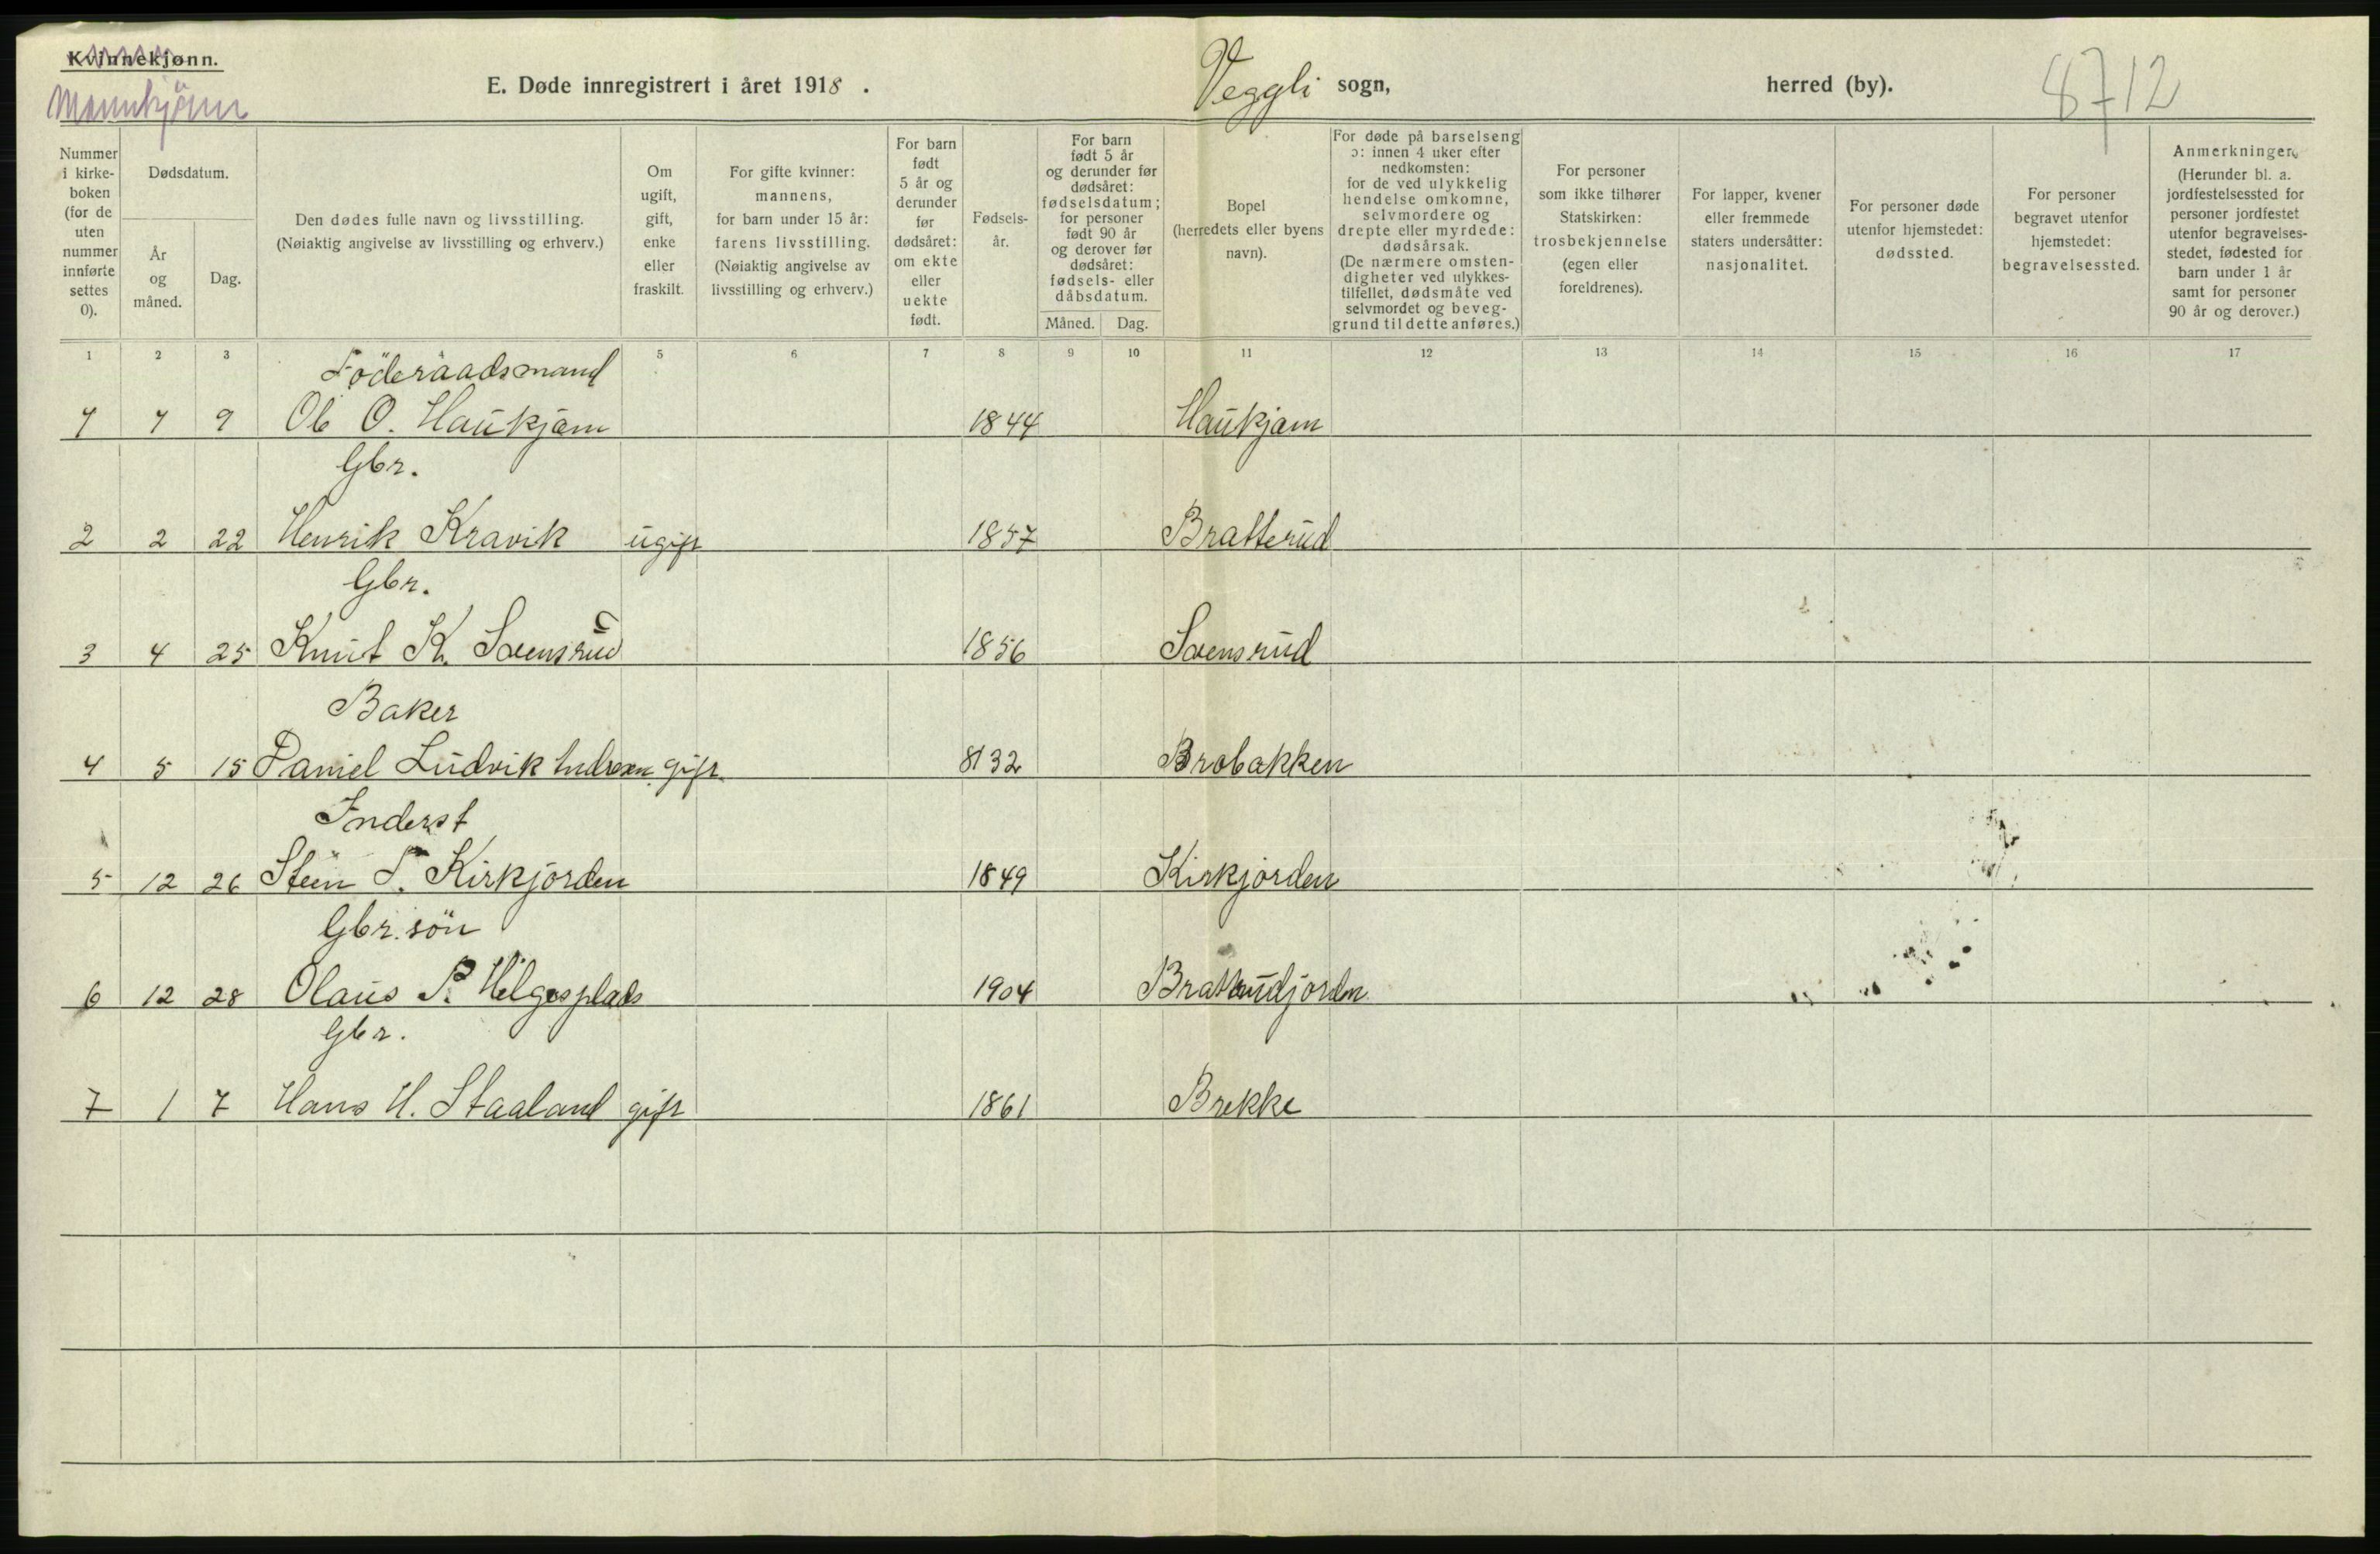 Kvinnekjønn.
Mannkjönn
E. Døde innregistrert i året 1918 .
Veggli sogn,
herred (by).
8712
Nummer i kirke-boken (for de uten nummer innførte settes 0).
Dødsdatum.
År og måned.
Dag.
Den dødes fulle navn og livsstilling.
(Nøiaktig angivelse av livsstilling og erhverv.)
Om ugift, gift, enke eller fraskilt.
For gifte kvinner: mannens, for barn under 15 år: farens livsstilling. (Nøiaktig angivelse av livsstilling og erhverv.)
For barn født 5 år og derunder før dødsåret: om ekte eller uekte født.
Fødsels-år.
For barn født 5 år og derunder før dødsåret: fødselsdatum; for personer født 90 år og derover før dødsåret: fødsels- eller dåbsdatum.
Måned. Dag.
Bopel (herredets eller byens navn).
For døde på barselseng ɔ: innen 4 uker efter nedkomsten: for de ved ulykkelig hendelse omkomne, selvmordere og drepte eller myrdede: dødsårsak. (De nærmere omsten-digheter ved ulykkes-tilfellet, dødsmåte ved selvmordet og beveg-grund til dette anføres.)
For personer som ikke tilhører Statskirken: trosbekjennelse (egen eller foreldrenes).
For lapper, kvener eller fremmede staters undersåtter: nasjonalitet.
For personer døde utenfor hjemstedet: dødssted.
For personer begravet utenfor hjemstedet: begravelsessted.
Anmerkninger. (Herunder bl. a. jordfestelsessted for personer jordfestet utenfor begravelses-stedet, fødested for barn under 1 år samt for personer 90 år og derover.)
1 2 3 4 5 6 7 8 9 10 11 12 13 14 15 16 17
Föderaadsmand
1 1 9 Ole O. Haukjam 1844 Haukjam
Gbr.
2 2 22 Henrik Kravik ugift 1857 Bratterud
Gbr.
3 4 25 Knut K. Svensrud 1856 Svensrud
Baker
4 5 15 Daniel Ludvik gift 8132 Brobakken
Inderst
5 12 26 Stein T. Kirkjorden 1849 Kirkjorden
Gbr. sön
6 12 28 Olaus P. Helgesplads 1904 Bratterudjorden
Gbr.
7 1 7 Hans H. Staaland gift 1861 Brekke